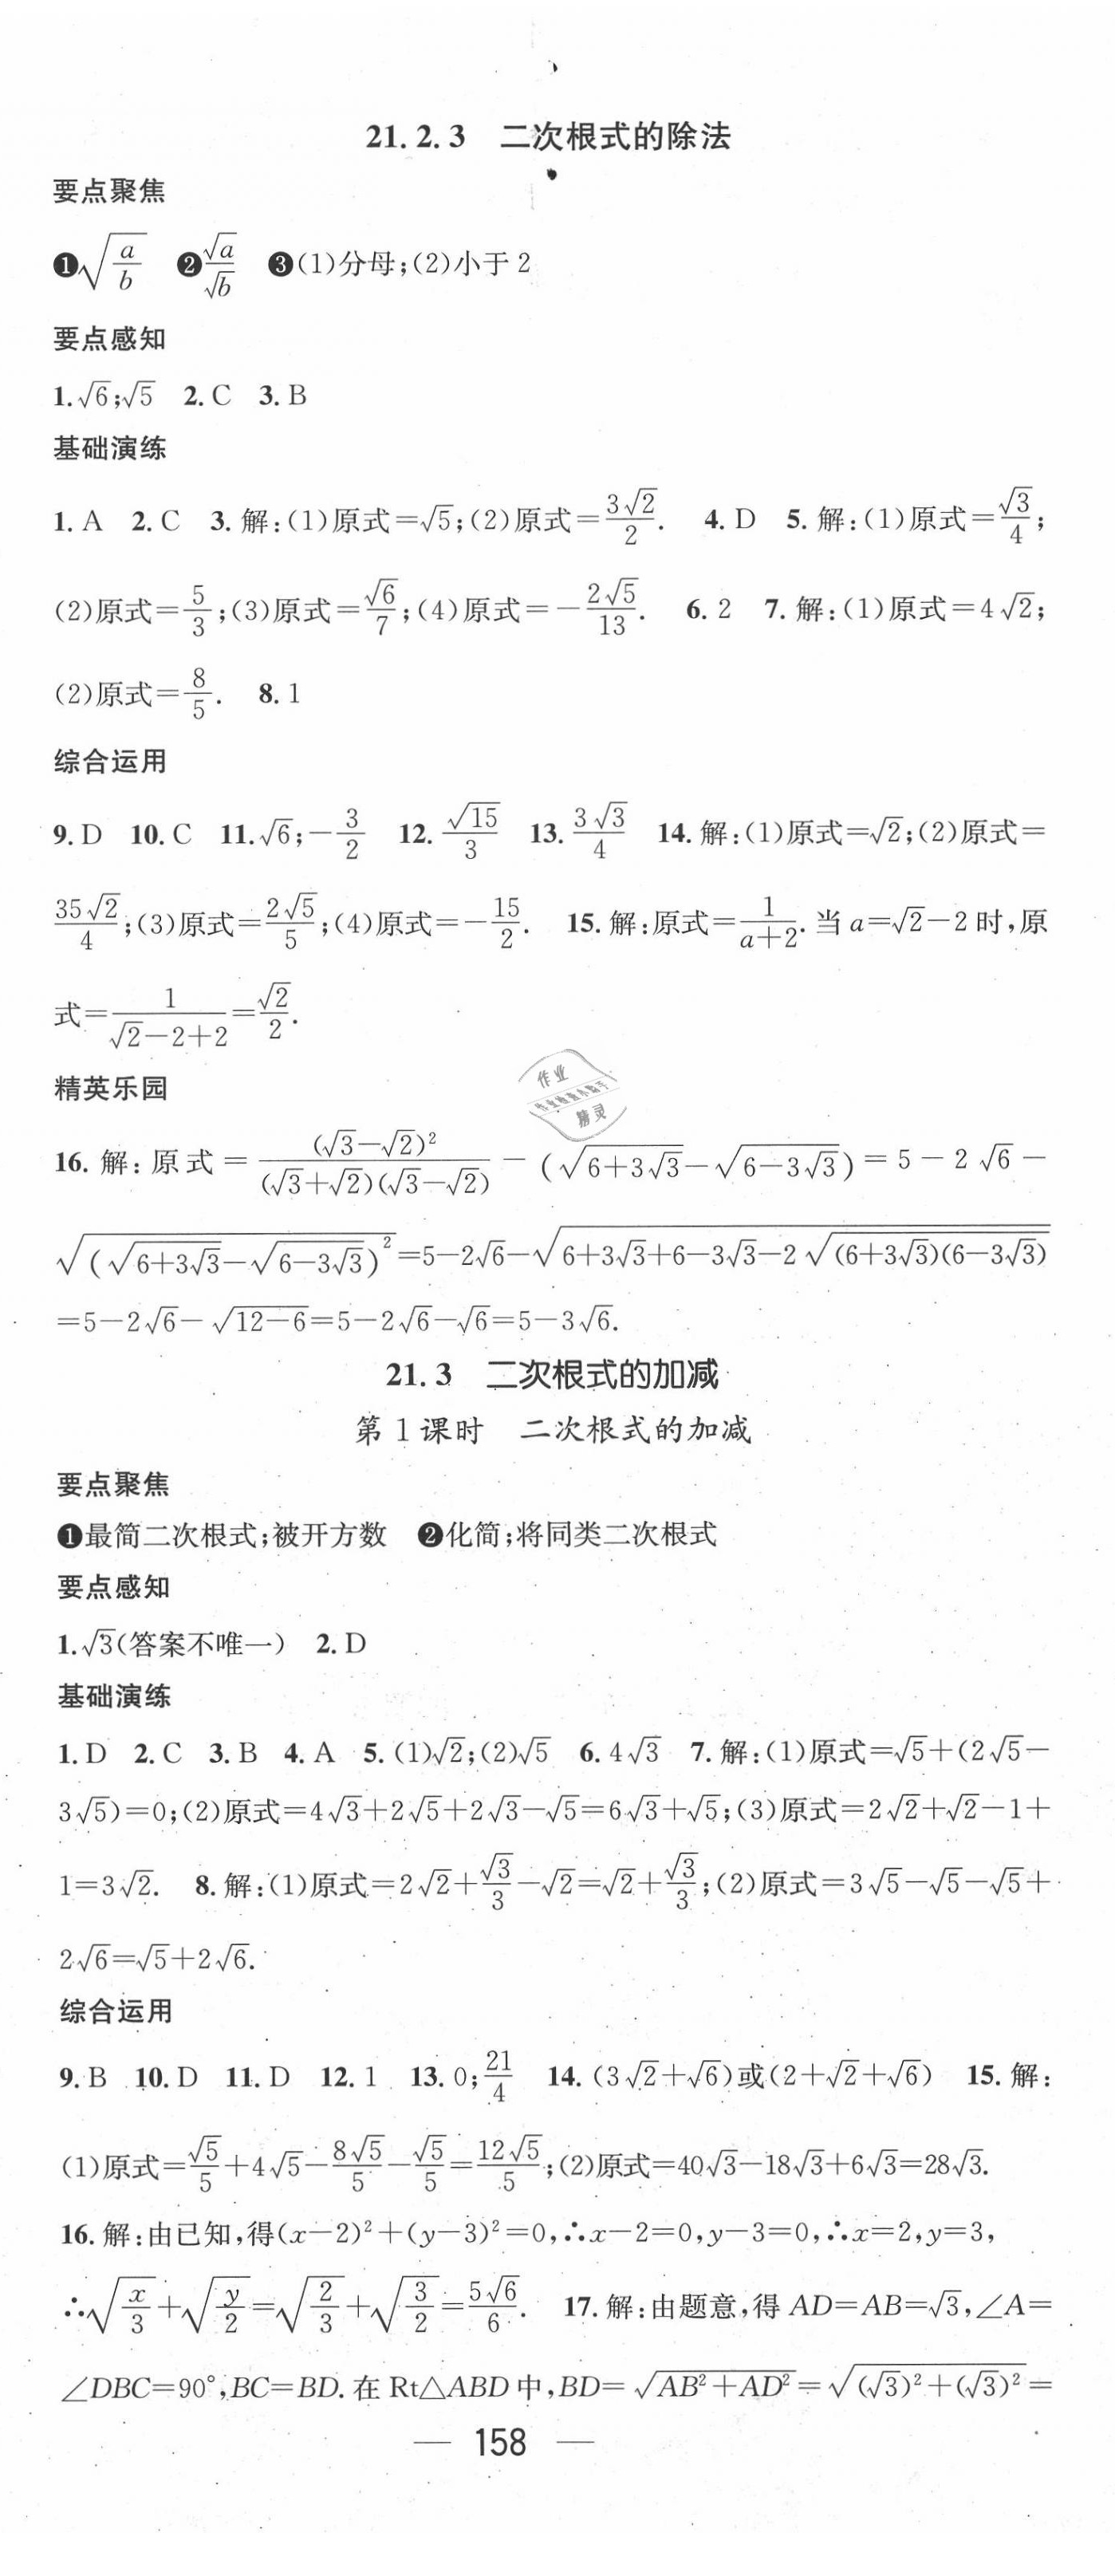 21.2.3 二次根式的除法
要点聚焦
❶√(a/b) ❷√a/√b ❸(1)分母;(2)小于2
要点感知
1.√6;√5 2.C 3.B
基础演练
1.A 2.C 3.解:(1)原式=√5;(2)原式=3√2/2. 4.D 5.解:(1)原式=√3/4;
(2)原式=5/3;(3)原式=√6/7;(4)原式=-2√5/13. 6.2 7.解:(1)原式=4√2;
(2)原式=8/5. 8.1
综合运用
9.D 10.C 11.√6;-3/2 12.√15/3 13.3√3/4 14.解:(1)原式=√2;(2)原式=
35√2/4;(3)原式=2√5/5;(4)原式=-15/2. 15.解:原式=1/(a+2).当a=√2-2时,原
式=1/(√2-2+2)=√2/2.
精英乐园
16.解:原式=(√3-√2)²/((√3+√2)(√3-√2))-(√(6+3√3)-√(6-3√3))=5-2√6-
√((√(6+3√3)-√(6-3√3))²)=5-2√6-√(6+3√3+6-3√3-2√((6+3√3)(6-3√3)))
=5-2√6-√(12-6)=5-2√6-√6=5-3√6.
21.3 二次根式的加减
第1课时 二次根式的加减
要点聚焦
❶最简二次根式;被开方数 ❷化简;将同类二次根式
要点感知
1.√3(答案不唯一) 2.D
基础演练
1.D 2.C 3.B 4.A 5.(1)√2;(2)√5 6.4√3 7.解:(1)原式=√5+(2√5-
3√5)=0;(2)原式=4√3+2√5+2√3-√5=6√3+√5;(3)原式=2√2+√2-1+
1=3√2. 8.解:(1)原式=2√2+√3/3-√2=√2+√3/3;(2)原式=3√5-√5-√5+
2√6=√5+2√6.
综合运用
9.B 10.D 11.D 12.1 13.0;21/4 14.(3√2+√6)或(2+√2+√6) 15.解:
(1)原式=√5/5+4√5-8√5/5-√5/5=12√5/5;(2)原式=40√3-18√3+6√3=28√3.
16.解:由已知,得(x-2)²+(y-3)²=0,∴x-2=0,y-3=0,∴x=2,y=3,
∴√(x/3)+√(y/2)=√(2/3)+√(3/2)=5√6/6. 17.解:由题意,得AD=AB=√3,∠A=
∠DBC=90°,BC=BD.在Rt△ABD中,BD=√(AB²+AD²)=√((√3)²+(√3)²)=
— 158 —
作业
精灵